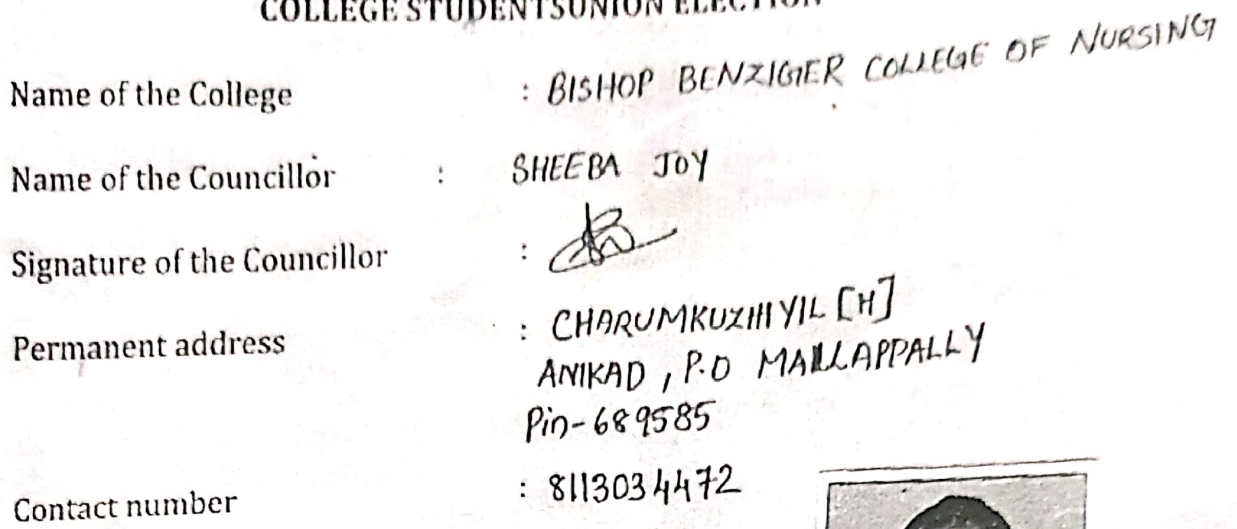 COLLEGE STUDENTSUNION ELECTION
Name of the College : BISHOP BENZIGER COLLEGE OF NURSING
Name of the Councillor : SHEEBA JOY
Signature of the Councillor :
Permanent address : CHARUMKUZHIYIL [H]
ANIKAD, P.O MALLAPPALLY
Pin-689585
Contact number : 8113034472